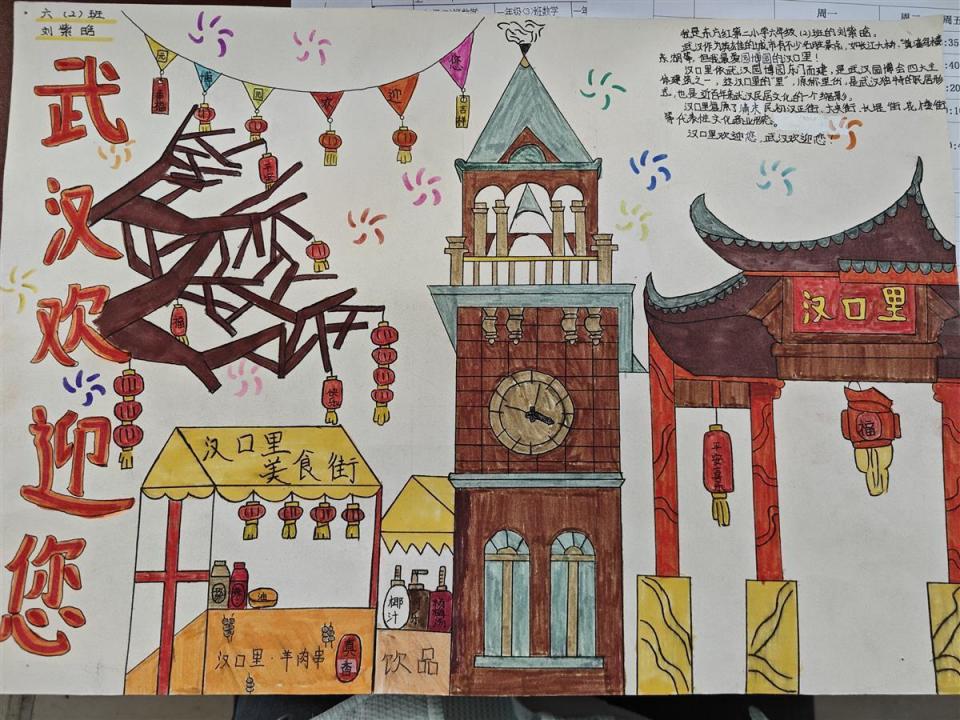 六（2）班
刘紫皓
武汉欢迎您
园博园欢迎您
幸福
万吉祥
平安
福
快乐
我是东方红第二小学六年级（2）班的刘紫皓。
武汉作为英雄的城市有不少名胜景点，如长江大桥，黄鹤楼
东湖等，但我最爱园博园的汉口里！
汉口里依武汉园博园东门而建，是武汉园博会四大主
体建筑之一，
是武汉独特的民居形
式，也是近百年老武汉民居文化的一个缩影。
汉口里复原了清末民初汉正街、大夹街、长堤街、花楼街
等代表性文化商业形态。
汉口里欢迎您，武汉欢迎您！
汉口里
福
平安喜乐
汉口里
美食街
油
椰汁
酸梅汤
汉口里·羊肉串
真香
饮品
周一
一年级(3)班数学
:35
:40